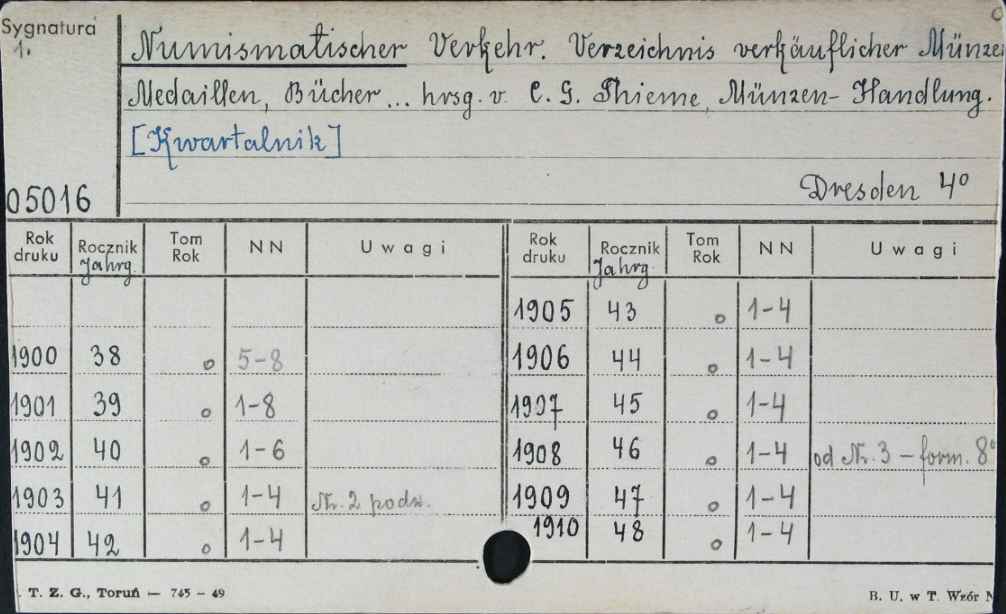 Sygnatura
1.
Numismatischer Verkehr. Verzeichnis verkäuflicher Münze
Medaillen, Bücher... hrsg. v. C. G. Thieme, Münzen-Handlung.
[Kwartalnik]
05016
Dresden 4°
Rok druku Rocznik Jahrg. Tom Rok NN Uwagi
1900 38 o 5-8
1901 39 o 1-8
1902 40 o 1-6
1903 41 o 1-4 Nr. 2 podw.
1904 42 o 1-4
Rok druku Rocznik Jahrg. Tom Rok NN Uwagi
1905 43 o 1-4
1906 44 o 1-4
1907 45 o 1-4
1908 46 o 1-4 od Nr. 3 – form. 8°
1909 47 o 1-4
1910 48 o 1-4
. T. Z. G., Toruń — 745 - 49
B. U. w T. Wzór N